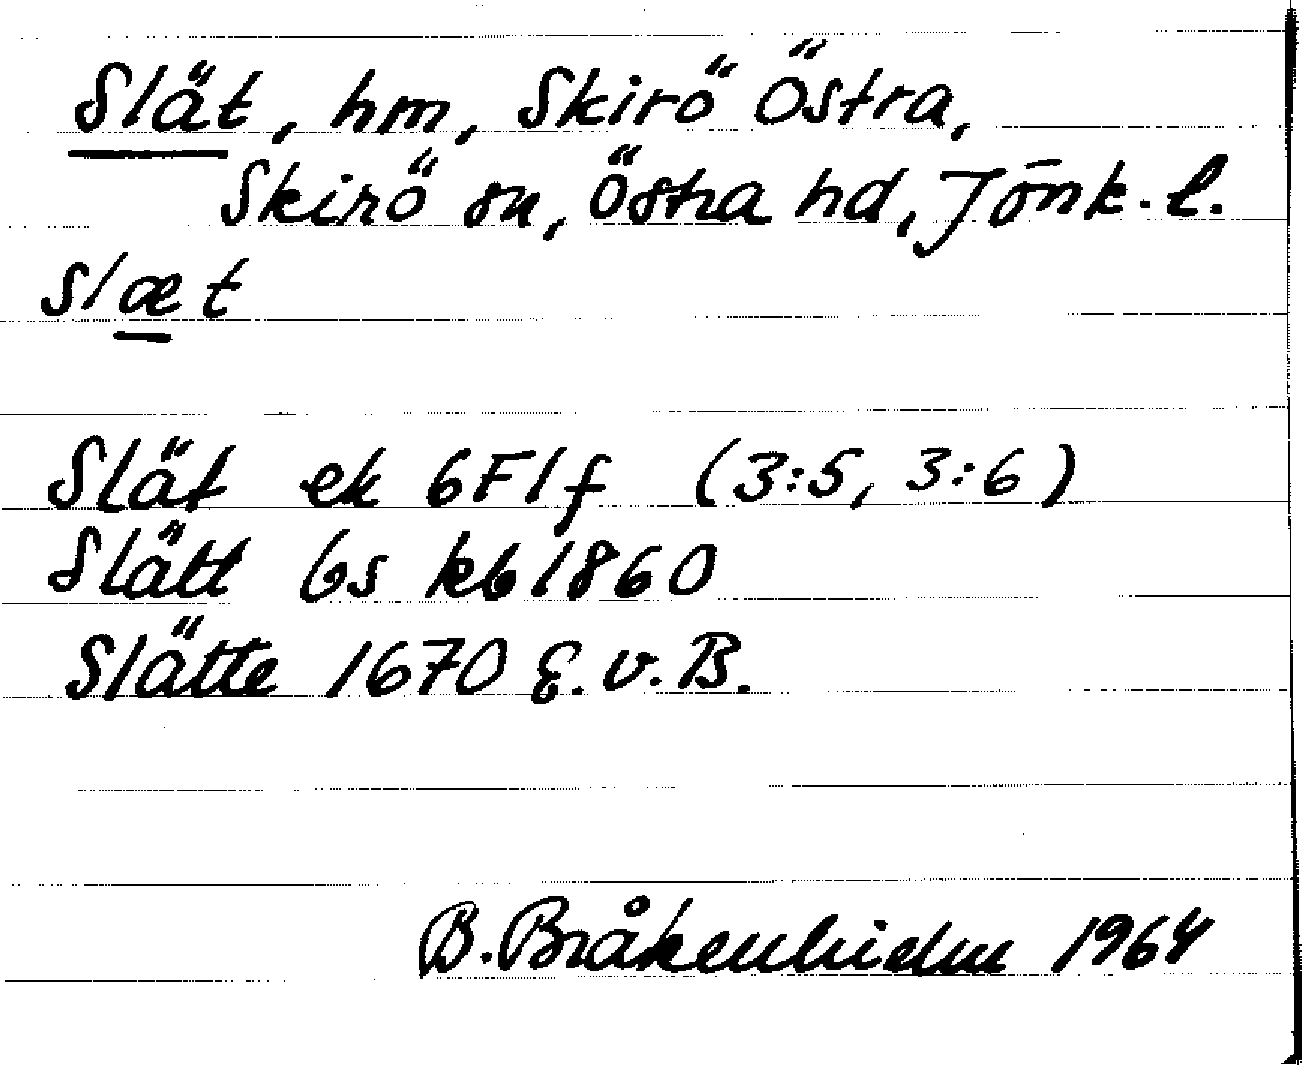 Slät, hm, Skirö Östra,
Skirö sn, Östra hd, Jönk. l.
slæt
Slät ek 6F1f (3:5, 3:6)
Slätt Gs kb 1860
Slätte 1670 E. v. B.
B. Bråkenhielm 1964